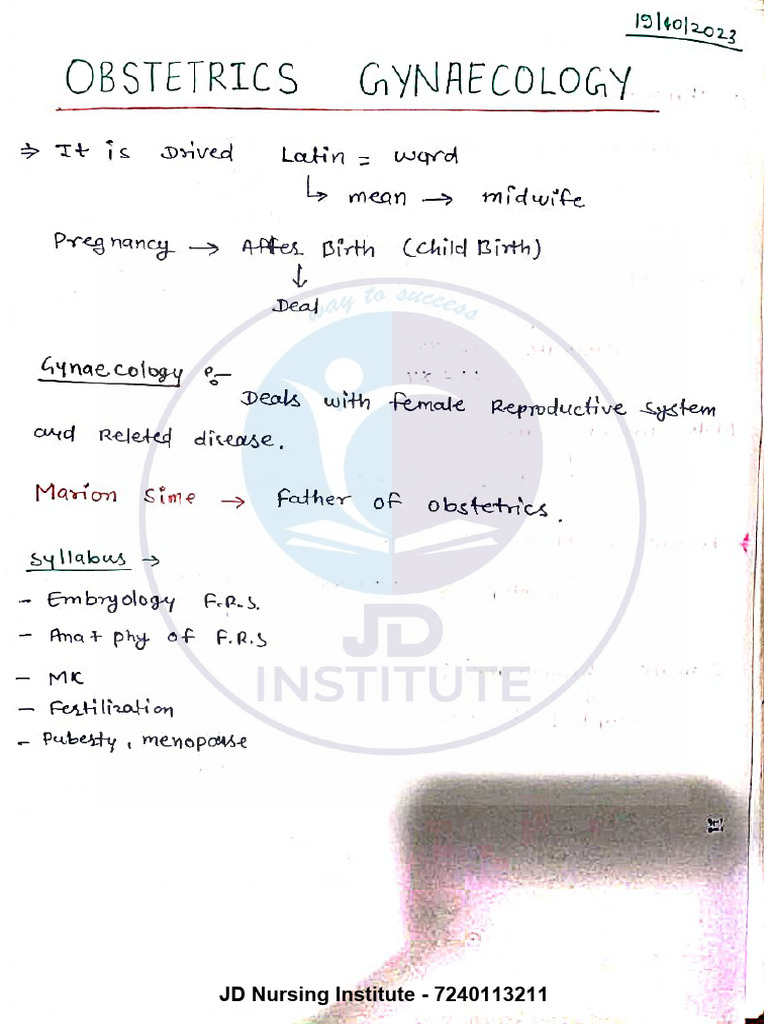 19/10/2023
OBSTETRICS GYNAECOLOGY
⇒ It is Drived Latin = word
↳ mean → midwife
Pregnancy → After Birth (Child Birth)
↓
Deal
way to success
Gynaecology :-
Deals with female Reproductive System
and Releted disease.
Marion Sime → Father of obstetrics.
Syllabus →
- Embryology F.R.S.
- Ana + phy of F.R.S
- MC
- Fertilization
- Puberty, menopause
JD
INSTITUTE
JD Nursing Institute - 7240113211